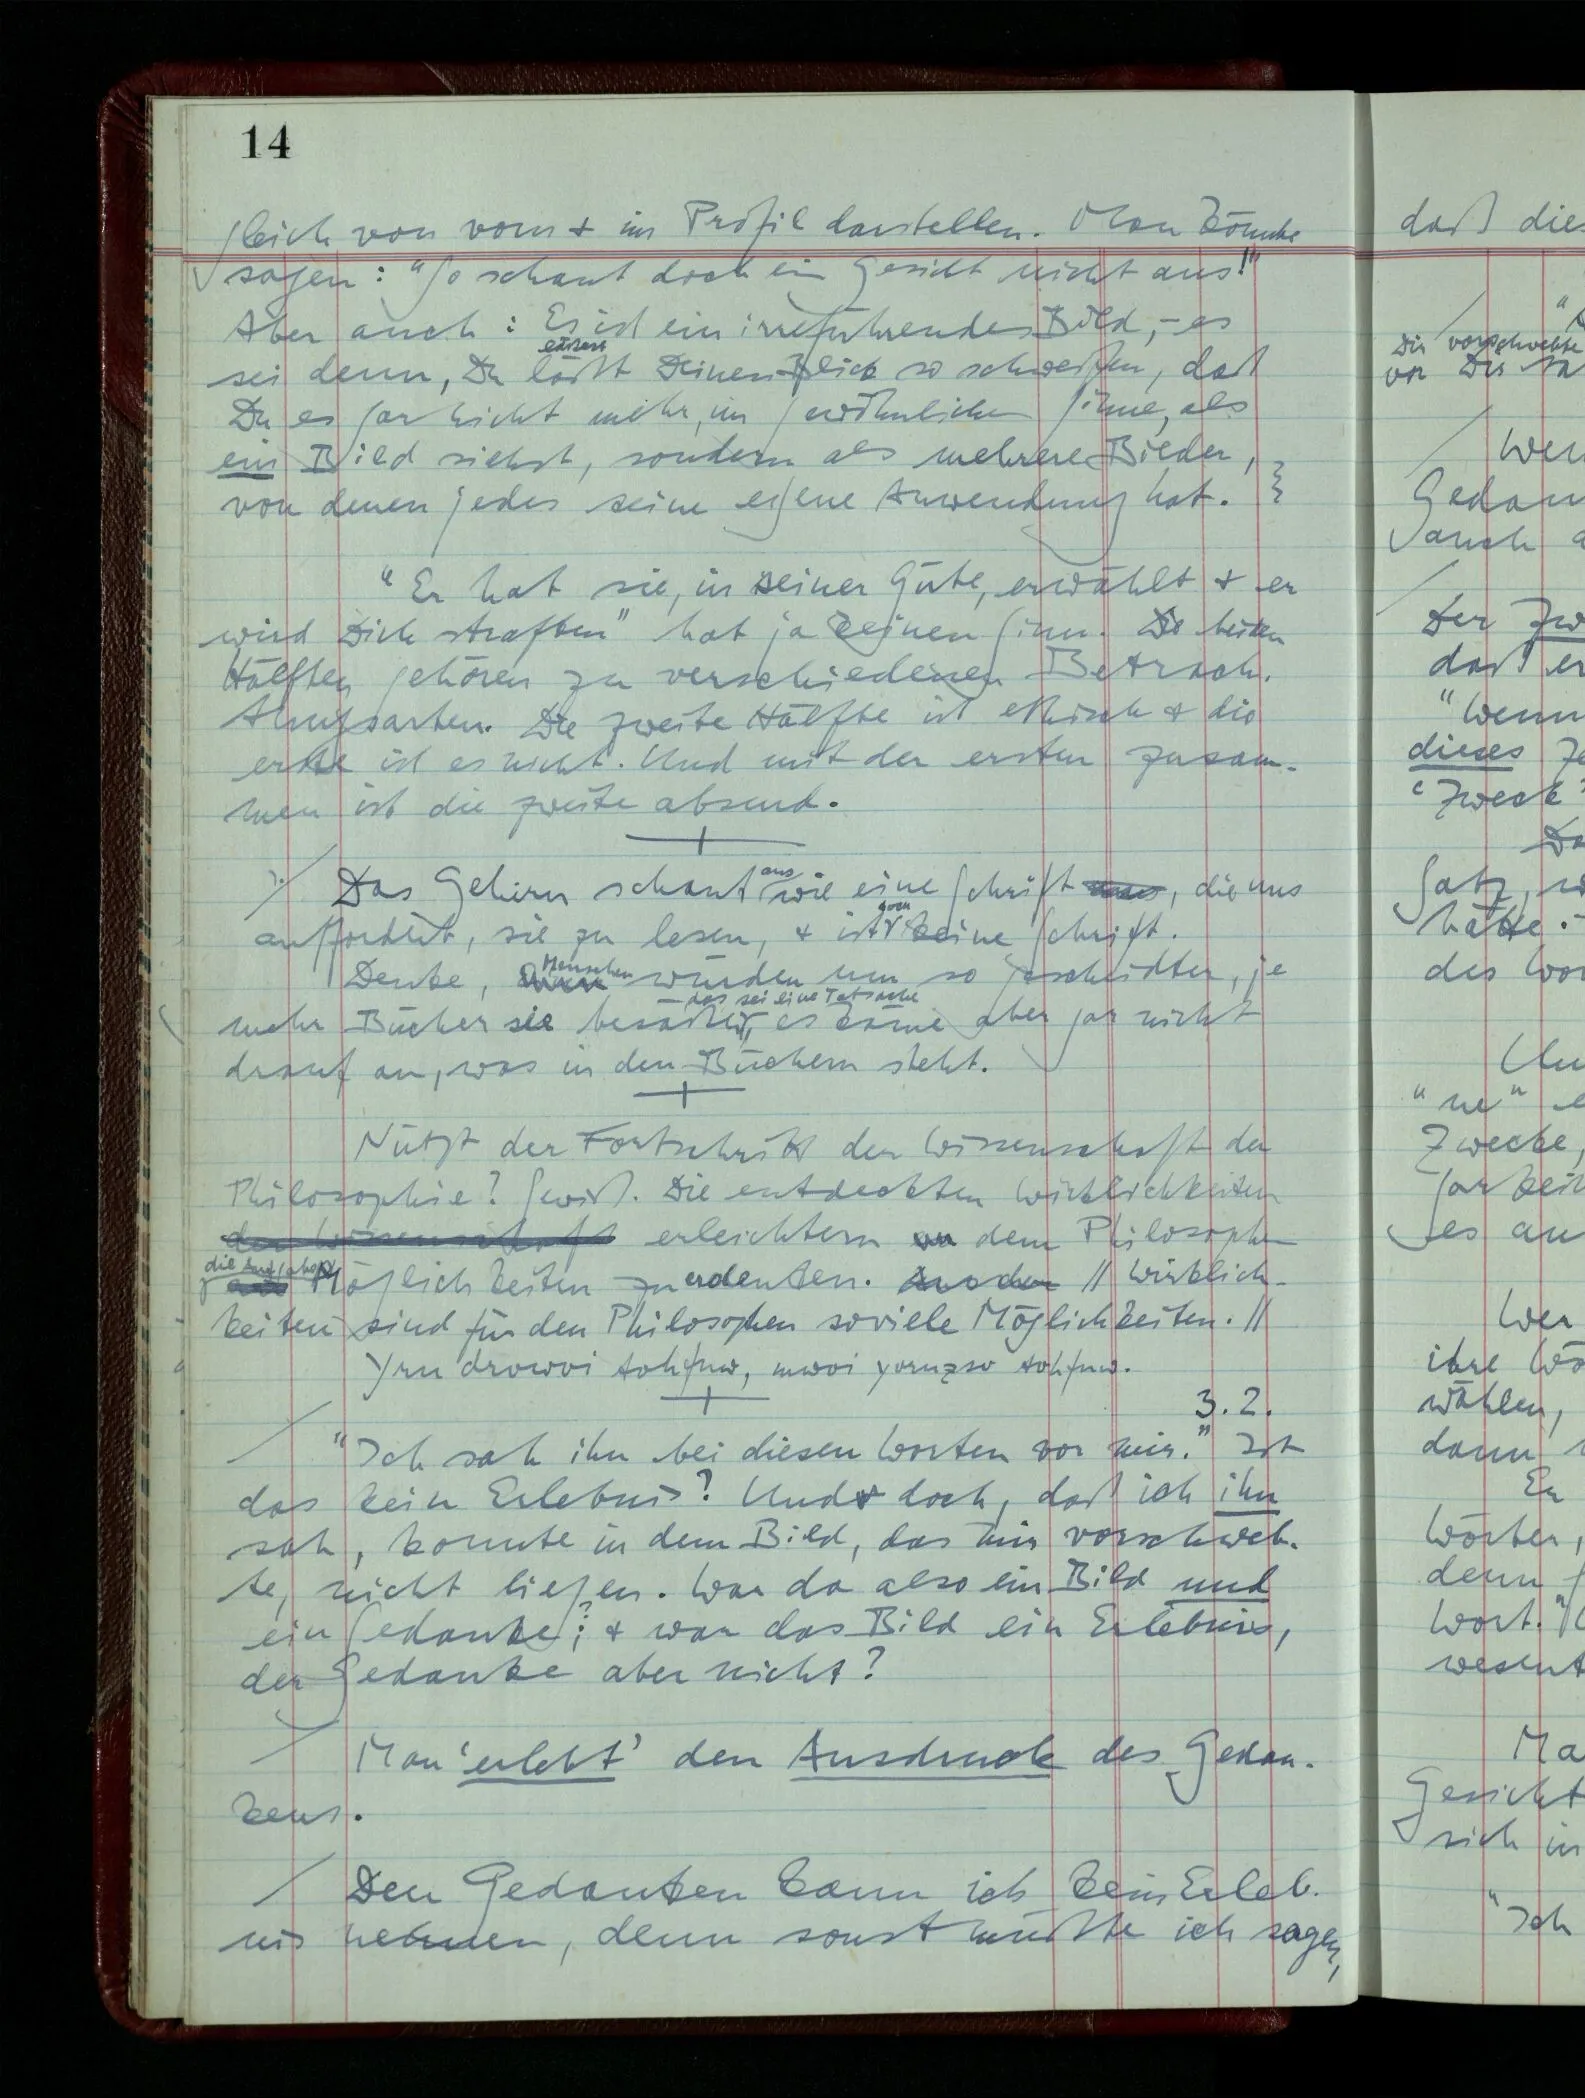 14
gleich von vorn & im Profil darstellen. Man könnte
sagen: "So schaut doch ein Gesicht nicht aus!"
Aber auch: Es ist ein irreführendes Bild, – es
sei denn, Du läßt Deinen Blick so schweifen, daß
Du es gar nicht mehr, im gewöhnlichen Sinne, als
ein Bild siehst, sondern als mehrere Bilder,
von denen jedes seine eigene Anwendung hat.
"Er hat sie, in seiner Güte, erwählt & er
wird Dich straffen" hat ja keinen Sinn. Die beiden
Hälften gehören zu verschiedenen Betrach-
tungsarten. Die zweite Hälfte ist ethisch & die
erste ist es nicht. Und mit der ersten zusam-
men ist die zweite absurd.
Das Gehirn schaut aus wie eine Schrift, die uns
auffordert, sie zu lesen, & ist doch keine Schrift.
Denke, Menschen würden um so gescheidter, je
mehr Bücher sie besäßen, – das sei eine Tatsache
es käme aber gar nicht
drauf an, was in den Büchern steht.
Nützt der Fortschritt der Wissenschaft der
Philosophie? Gewiß. Die entdeckten Wirklichkeiten
der Wissenschaft erleichtern dem Philosophen
die Aufgabe, Möglichkeiten zu erdenken. // Wirklich-
keiten sind für den Philosophen soviele Möglichkeiten. //
3.2.
"Ich sah ihn bei diesen Worten vor mir." Ist
das kein Erlebnis? Und doch, daß ich ihn
sah, konnte in dem Bild, das mir vorschweb-
te, nicht liegen. War da also ein Bild und
ein Gedanke; & war das Bild ein Erlebnis,
der Gedanke aber nicht?
Man 'erlebt' den Ausdruck des Gedan-
kens.
Den Gedanken kann ich kein Erleb-
nis nennen, denn sonst müßte ich sagen,
daß dies
Dir vorschwebte
Wen
Gedan
auch a
Der Zw
daß er
"Wenn
dieses
'Zweck'
Satz, w
hätte.
des Wor
"ne"
Zwecke,
gar kein
es au
Wer
ihre Wö
wählen,
dann
Er
Wörter,
denn
Wort."
wesent
Ma
Gesicht
sich in
"Ich